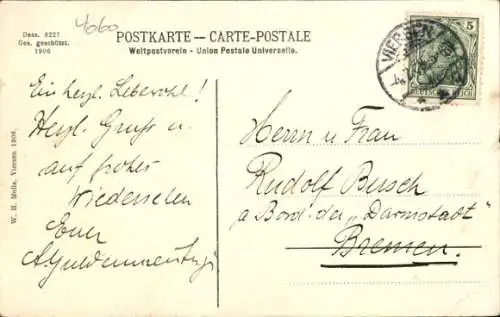 Dess. 8227
Ges. geschützt.
1906
4060
POSTKARTE — CARTE-POSTALE
Weltpostverein - Union Postale Universelle.
5
DEUTSCHES REICH
VIERSEN
W. H. Molls, Viersen
Ein herzl. Lebewohl!
Herzl. Gruss u.
auf frohes
Wiedersehen
Euer
Herrn u Frau
Rudolf Busch
a Bord der „Darmstadt"
Bremen.